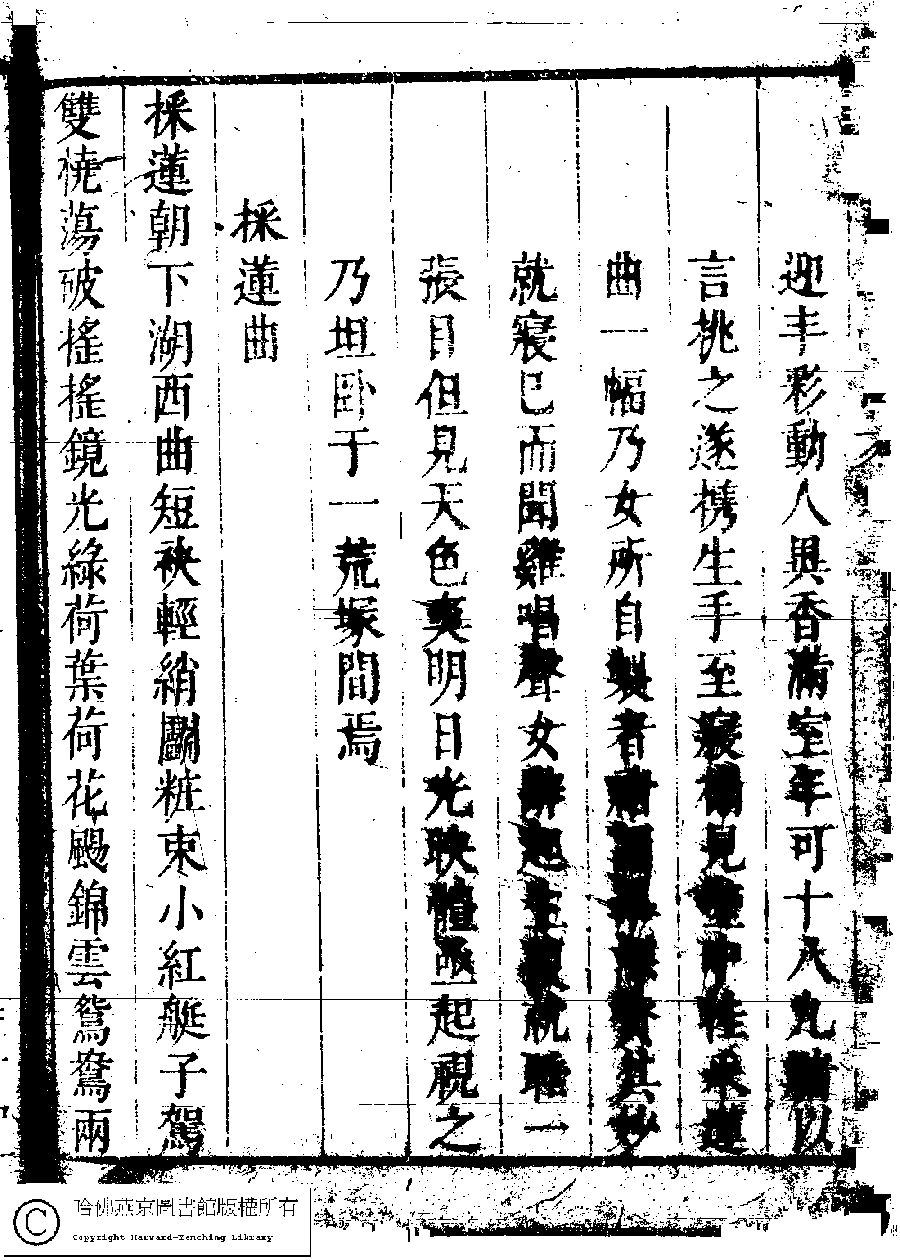 迎丰彩動人異香滿室年可十八九以
言挑之遂携生手至寢榻見壁中挂采蓮
曲一幅乃女所自製者其妙
就寢已而聞雞唱聲女辭起生就睡一
張目但見天色爽明日光映體亟起視之
乃坦卧于一荒塚間焉
採蓮曲
採蓮朝下湖西曲短袂輕綃鬬粧束小紅艇子駕
雙橈蕩破搖搖鏡光綠荷葉荷花颺錦雲鴛鴦兩
哈佛燕京圖書館版權所有
Copyright Harvard-Yenching Library